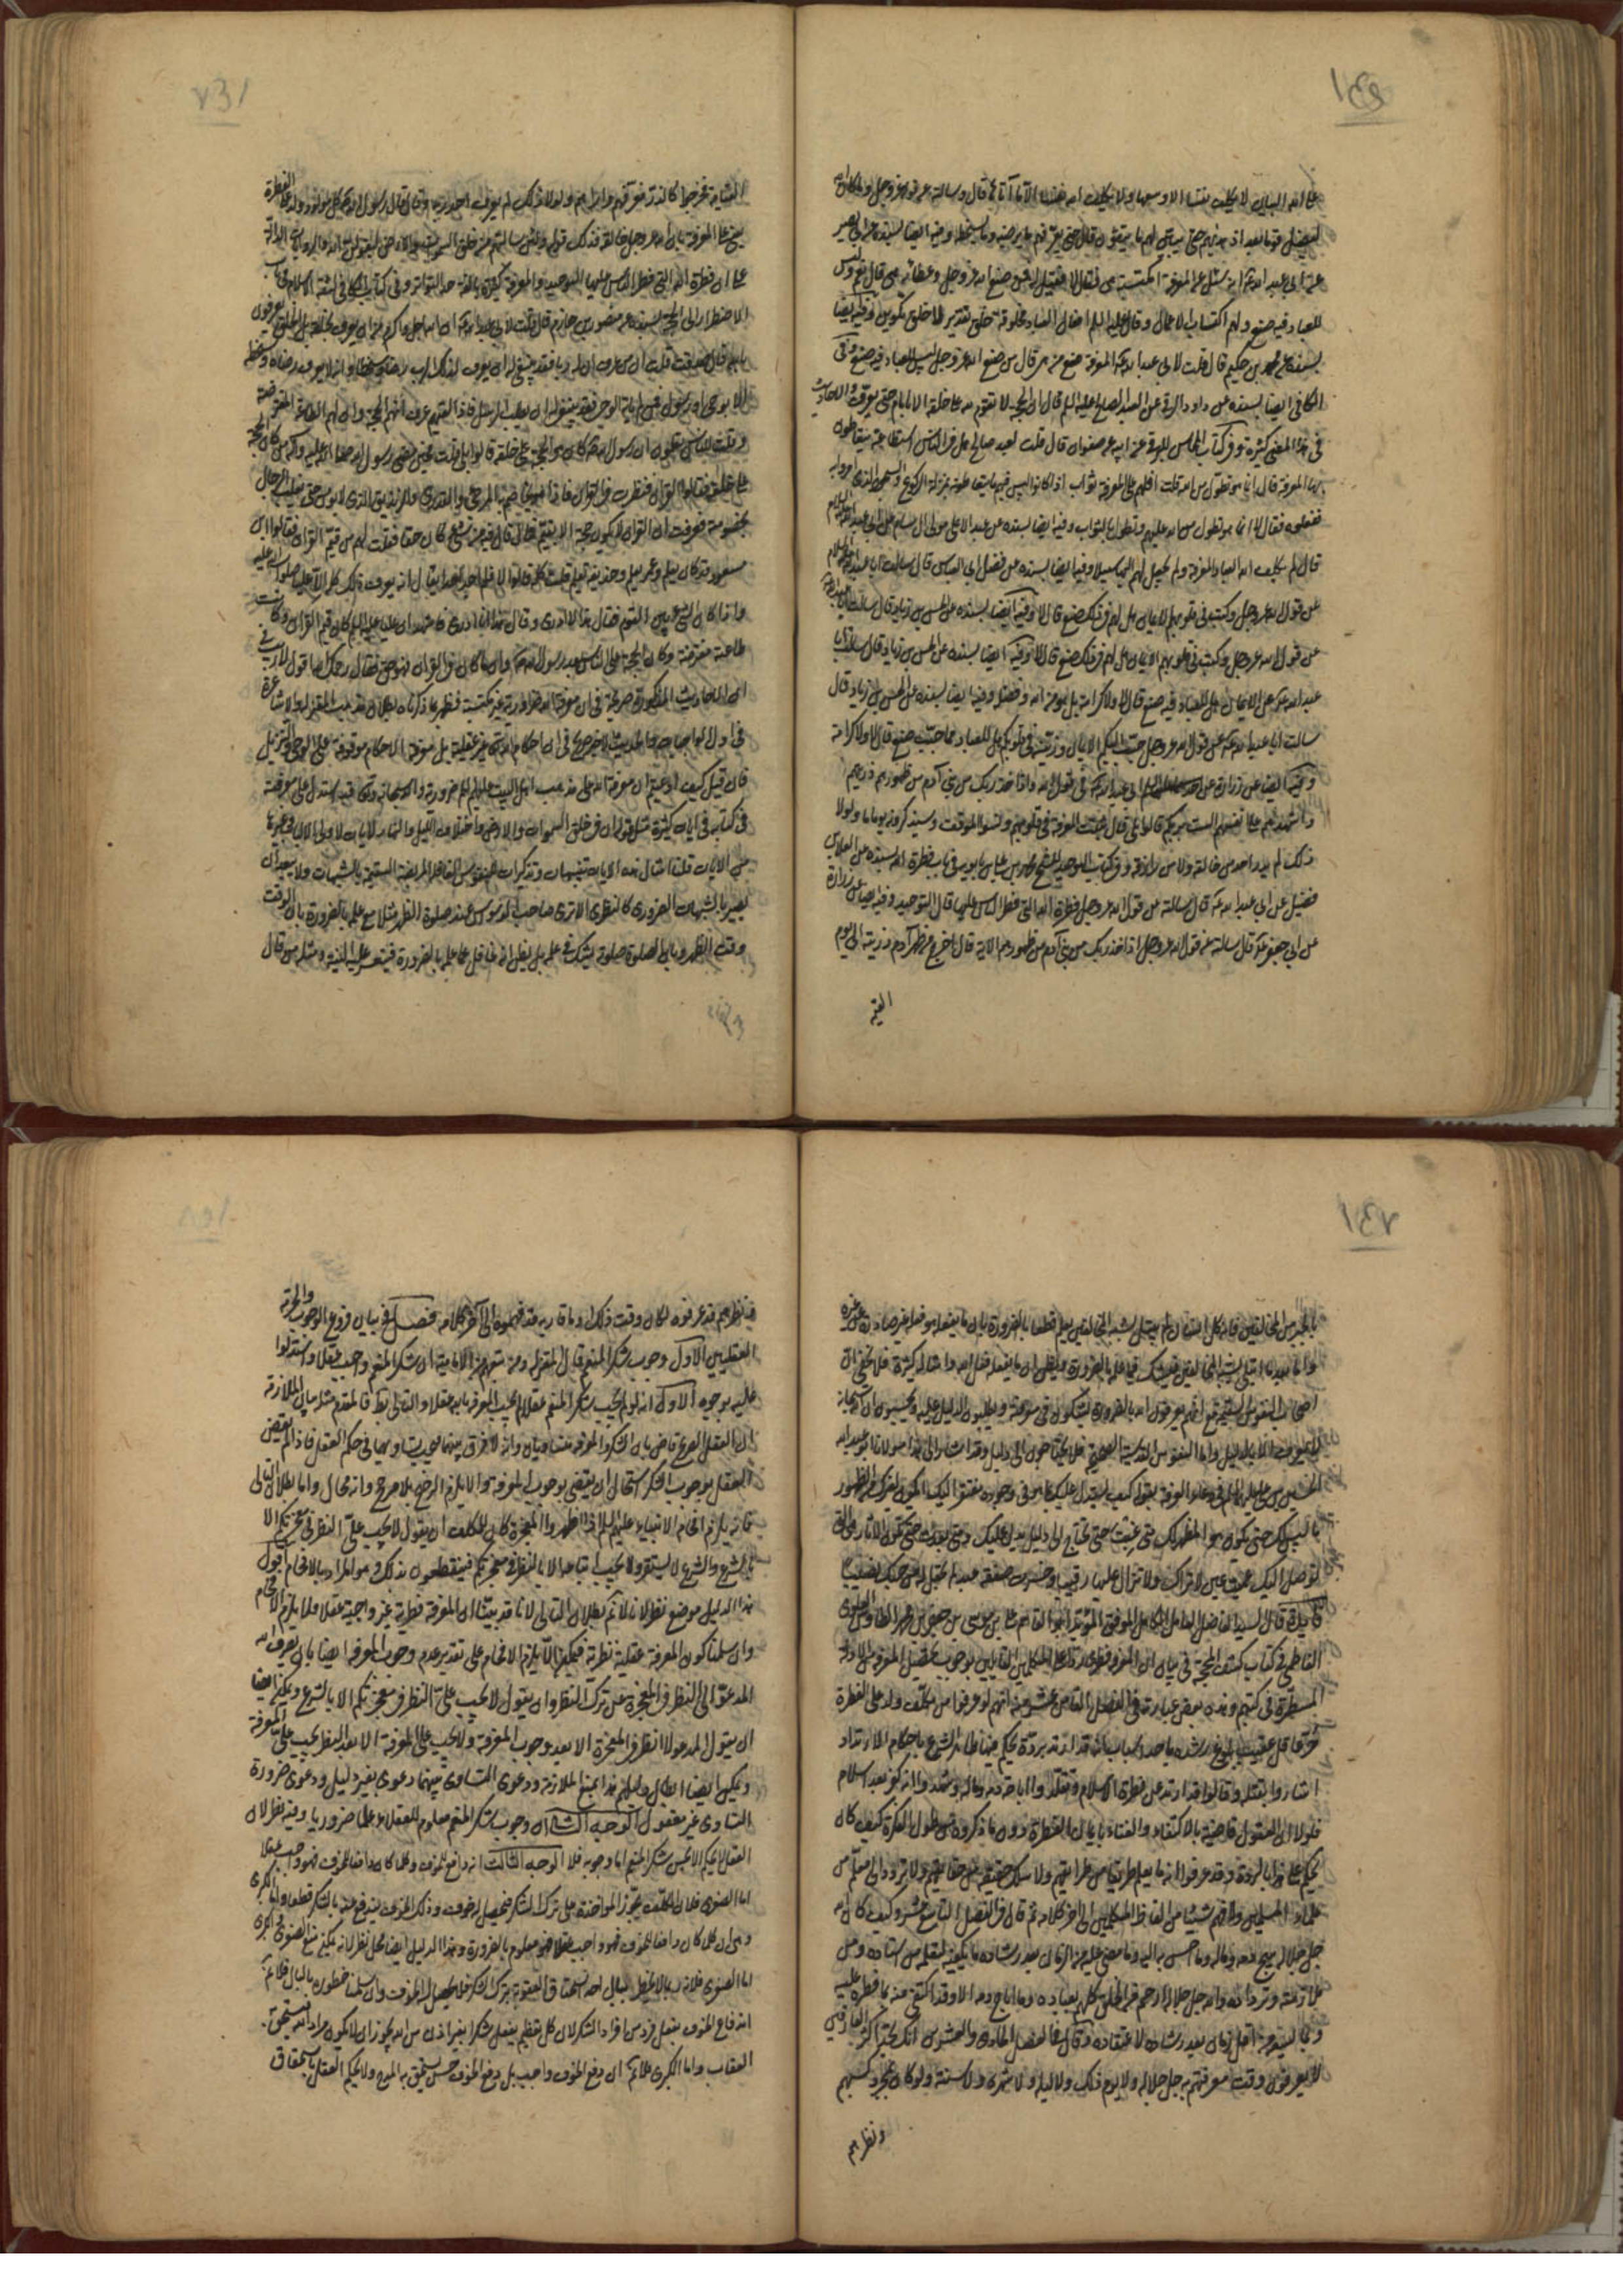 على الله البيان لا يكلف نفسا الا وسعها ولا يكلف الله نفسا الا ما آتاها قال وسالته عن قوله عز وجل وما كان الله
ليضل قوما بعد اذ هديهم حتى يبين لهم ما يتقون قال حتى يعرفهم ما يرضيه وما يسخطه وفيه ايضا بسنده عن ابي بصير
عن ابي عبد الله ع انه سئل عن المعرفة امكتسبة هي فقال لا فقيل له فمن صنع الله عز وجل وعطائه هي قال نعم وليس
للعباد فيه صنع ولهم اكتساب الاعمال وقال عليه السلم افعال العباد مخلوقة خلق تقدير لا خلق تكوين وفيه ايضا
بسنده عن محمد بن حكيم قال قلت لابي عبد الله ع المعرفة صنع من هي قال من صنع الله عز وجل ليس للعباد فيه صنع وفي
الكافي ايضا بسنده عن داود الرقي عن العبد الصالح عليه السلم قال ان الحجة لا تقوم لله على خلقه الا بامام حتى يعرف والاحاديث
في هذا المعنى كثيرة وفي كتاب المحاسن للبرقي عن ابيه عن صفوان قال قلت لعبد صالح هل في الناس استطاعة يتعاطون
بها المعرفة قال لا انما هو تطول من الله قلت افلهم على المعرفة ثواب اذا كانوا ليس فيهم ما يتعاطونه بمنزلة الركوع والسجود الذي امروا به
ففعلوه فقال لا انما هو تطول من الله عليهم وتطول بالثواب وفيه ايضا بسنده عن عبد الاعلى مولى ال سام عن ابي عبد الله عليه السلام
قال لم يكلف الله العباد المعرفة ولم يجعل لهم اليها سبيلا وفيه ايضا بسنده عن فضل ابي العباس قال سالت ابا عبد الله عليه السلام
عن قول الله عز وجل وكتب في قلوبهم الايمان هل لهم في ذلك صنع قال لا وفيه ايضا بسنده عن الحسن بن زياد قال سالت ابا عبد الله ع
عن قول الله عز وجل وكتب في قلوبهم الايمان هل لهم في ذلك صنع قال لا وفيه ايضا بسنده عن الحسن بن زياد قال سالت ابا
عبد الله ع عن الايمان هل للعباد فيه صنع قال لا ولا كرامة بل هو من الله وفضله وفيه ايضا بسنده عن الحسن بن زياد قال
سالت ابا عبد الله ع عن قول الله عز وجل حبب اليكم الايمان وزينه في قلوبكم هل للعباد مما حبب صنع قال لا ولا كرامة
وفيه ايضا عن زرارة عن ابي عبد الله ع في قول الله واذ اخذ ربك من بني آدم من ظهورهم ذريتهم
واشهدهم على انفسهم الست بربكم قالوا بلى قال ثبتت المعرفة في قلوبهم ونسوا الموقف وسيذكرونه يوما ما ولولا
ذلك لم يدر احد من خالقه ولا من رازقه وفي كتاب التوحيد للشيخ محمد بن علي بن بابويه في باب فطرة الله بسنده عن العلا بن
فضيل عن ابي عبد الله ع قال سالته عن قول الله عز وجل فطرة الله التي فطر الناس عليها قال التوحيد وفيه ايضا عن زرارة
عن ابي جعفر ع قال سالته عن قول الله عز وجل واذ اخذ ربك من بني آدم من ظهورهم الاية قال اخرج من ظهر آدم ذريته الى يوم
القيمة
القيامة فخرجوا كالذر فعرفهم واراهم ولولا ذلك لم يعرف احد ربه وقال قال رسول الله ص كل مولود يولد على الفطرة
يعني على المعرفة بان الله عز وجل خالقه فذلك قوله ولئن سالتهم من خلق السموات والارض ليقولن الله والروايات الدالة
على ان فطرة الله التي فطر الناس عليها التوحيد والمعرفة كثيرة بالغة حد التواتر وفي كتاب الكافي لثقة الاسلام في باب
الاضطرار الى الحجة بسنده عن منصور بن حازم قال قلت لابي عبد الله ع ان الله اجل واكرم من ان يعرف بخلقه بل الخلق يعرفون
بالله قال صدقت قلت ان من عرف ان له ربا فقد ينبغي له ان يعرف لذلك الرب رضا وسخطا وانه لا يعرف رضاه وسخطه
الا بوحي او رسول فمن لم ياته الوحي فقد ينبغي له ان يطلب الرسل فاذا لقيهم عرف انهم الحجة وان لهم الطاعة المفترضة
وقلت للناس تعلمون ان رسول الله ص كان هو الحجة على خلقه قالوا بلى قلت فحين مضى رسول الله صلى الله عليه وآله من كان الحجة
على خلقه فقالوا القران فنظرت في القران فاذا هو يخاصم به المرجي والقدري والزنديق الذي لا يؤمن به حتى يغلب الرجال
بخصومته فعرفت ان القران لا يكون حجة الا بقيم فما قال فيه من شيء كان حقا فقلت لهم من قيم القران فقالوا ابن
مسعود قد كان يعلم وعمر يعلم وحذيفة يعلم قلت كله قالوا لا فلم اجد احدا يقال انه يعرف ذلك كله الا عليا صلوات الله عليه
واذا كان الشيء بين القوم فقال هذا لا ادري وقال هذا انا ادري فاشهد ان عليا عليه السلم كان قيم القران وكانت
طاعته مفترضة وكان الحجة على الناس بعد رسول الله ص وان ما قال في القران فهو حق فقال رحمك الله اقول لا ريب في
ان الاحاديث المذكورة صريحة في ان معرفة الله فطرية ضرورية غير مكتسبة فظهر بما ذكرناه بطلان مذهب المعتزلة والاشاعرة
في اول الواجبات والحديث الاخير صريح في ان احكام الله تع غير عقلية بل معرفة الاحكام موقوفة على الوحي والتنزيل
فان قيل كيف ادعيتم ان معرفة الله على مذهب اهل البيت عليهم السلم ضرورية والله سبحانه وتع قد استدل على معرفته
في كتابه في ايات كثيرة مثل قوله ان في خلق السموات والارض واختلاف الليل والنهار لايات لاولي الالباب وغيرها
من الايات قلنا امثال هذه الايات تنبيهات وتذكرات للنفوس الغافلة المريضة السقيمة بالشبهات ولا يبعد ان
يصير بالشبهات الضروري كالنظري الا ترى صاحب الوسوس عند صلوة الظهر مثلا مع علمه بالضرورة بان الوقت
وقت الظهر وبان الصلوة صلوة يشك في علمه بل يظن انه غافل عما علمه بالضرورة فيتعسر عليه النية ومثله من قال
بالجبر من المخالفين فانه كل انسان لم يبتل بشبه المخالفين يعلم قطعا بالضرورة بان ما يفعله هو فعله غير صادر عن غيره
واما بعد ما ابتلي بشبه المخالفين فيشك فيما علمه بالضرورة ويظن ان ما يفعله فعل الله وامثاله كثيرة فلا يخفى ان
اصحاب النفوس السقيمة مع انهم يعرفون الله بالضرورة يشكون في معرفته ويطلبون الدليل عليه ويحسبون ان الله سبحانه
لا يعرف الا بالدليل واما النفوس القدسية الصحيحة فلا يحتاجون الى دليل وقد اشار الى هذا مولانا ابو عبد الله
الحسين بن علي عليهما السلم في دعاء العرفة بقوله كيف يستدل عليك بما هو في وجوده مفتقر اليك ايكون لغيرك من الظهور
ما ليس لك حتى يكون هو المظهر لك متى غبت حتى تحتاج الى دليل يدل عليك ومتى بعدت حتى تكون الاثار هي التي
توصل اليك عميت عين لا تراك ولا تزال عليها رقيبا وخسرت صفقة عبد لم تجعل له من حبك نصيبا
فايدة قال السيد الفاضل العامل الكامل الموفق المؤيد ابو القاسم علي بن موسى بن جعفر بن محمد الطاوس العلوي
الفاطمي في كتاب كشف المحجة في بيان ان المعرفة فطرية ردا على المتكلمين القائلين بوجوب تحصيل المعرفة من الادلة
المسطرة في كتبهم وهذه بعض عباراته في الفصل الثامن عشر منه انهم لو عرفوا من مكلف ولد على الفطرة
حر عاقل عقيب بلوغ رشده باحد اسباب الرشد انه ارتد بردة يحكم فيها ظاهر الشرع باحكام الارتداد
اشاروا بقتله وقالوا قد ارتد عن فطرة الاسلام وتقلدوا اباحة دمه وماله وشهدوا انه كفر بعد اسلام
فلولا ان العقول قاضية بالاكتفاء والغناء بايمان الفطرة دون ما ذكروه من طول الفكرة كيف كان
يحكم على هذا بالردة وقد عرفوا انه ما يعلم طريقا من طرايقهم ولا سلك حقيقة من حقايقهم ولا تردد الى معلم من
علماء المسلمين ولا فهم شيئا من الفاظ المتكلمين الى اخر كلامه ثم قال في الفصل التاسع عشر وكيف كان الله
جل جلاله يبيح دمه وماله وما احسن به اليه وما مضى عليه من الزمان بعد رشاده ما يكفيه لتعلمه من استاده ومن
ملازمته وتردده والله جل جلاله ارحم من الخلق كلهم بعباده وما اباح دمه الا وقد اكتفى منه بما فطره عليه
وبما يسعه اقل زمان بعد رشاده لاعتقاده وقال في الفصل الحادي والعشرين انك تجد اكثر العارفين
لا يعرفون وقت معرفتهم به جل جلاله ولا يوم ذلك ولا ليله ولا شهره ولا سنته ولو كان بمجرد كسبهم
ونظرهم
ونظرهم قد عرفوه لكان وقت ذلك او ما قاربه قد فهموه الى آخر كلامه فصل في بيان فروع الوجوب والحرمة
العقليين الاول وجوب شكر المنعم قال المعتزلة ومن تبعهم من الامامية ان شكر المنعم واجب عقلا واستدلوا
عليه بوجوه الاول انه لو لم يجب شكر المنعم عقلا لم يجب المعرفة بالله عقلا والتالي بط فالمقدم مثله بيان الملازمة
ان العقل الصريح قاض بان الشكر والمعرفة متساويان وانه لا فرق بينهما وهما في حكم العقل فاذا لم يقض
العقل بوجوب الشكر استحال ان يقضي بوجوب المعرفة والا يلزم الترجيح بلا مرجح وانه محال واما بطلان التالي
فانه يلزم افحام الانبياء عليهم السلم اذا اظهروا المعجزة كان للمكلف ان يقول لا يجب علي النظر في معجزتكم الا
بالشرع والشرع لا يستقر ولا يجب اتباعه الا بالنظر في معجزتكم فينقطعون بذلك وهو المراد بالافحام اقول
هذا الدليل موضع نظر لانا لانم بطلان التالي لانا قد بينا ان المعرفة فطرية غير واجبة عقلا ولا يلزم الافحام
وان سلمنا كون المعرفة عقلية نظرية فيمكن ان لا يلزم الافحام على تقدير عدم وجوب المعرفة ايضا بان يعرف الله
المدعو الى النظر في المعجزة عن ترك النظر وان يقول لا يجب علي النظر في معجزتكم الا بالشرع ويمكن ايضا
ان يقول المدعو لا انظر في المعجزة الا بعد وجوب المعرفة ولا يجب علي المعرفة الا بعد النظر يجب علي المعرفة
ويمكن ايضا ابطال دليلهم هذا بمنع الملازمة ودعوى التساوي بينهما دعوى بغير دليل ودعوى ضرورة
التساوي غير معقول الوجه الثاني ان وجوب شكر المنعم معلوم للعقلاء علما ضروريا وفيه نظر لان
العقل انما يحكم بحسن شكر المنعم اما وجوبه فلا الوجه الثالث انه دافع للخوف وكلما كان دافعا للخوف فهو واجب عقلا
اما الصغرى فلان المكلف يجوز المؤاخذة على ترك الشكر فيحصل له خوف وذلك الخوف يندفع عنه بالشكر قطعا واما الكبرى
وهي ان كل ما كان دافعا للخوف فهو واجب عقلا فهو معلوم بالضرورة وهذا الدليل ايضا محل نظر لانه يمكن منع الصغرى والكبرى
اما الصغرى فلانه ربما لا يخطر ببال احد استحقاق العقوبة بترك الشكر فلا يحصل له الخوف وان سلمنا خطوره بالبال فلانم
اندفاع الخوف بفعل فرد من افراد الشكر لان كل تعظيم يفعل شكرا بغير اذن من الله يجوز ان لا يكون مراد الله فيستحق به
العقاب واما الكبرى فلانم ان دفع الخوف واجب بل دفع الخوف حسن يستحق به المدح ولا يحكم العقل باستحقاق